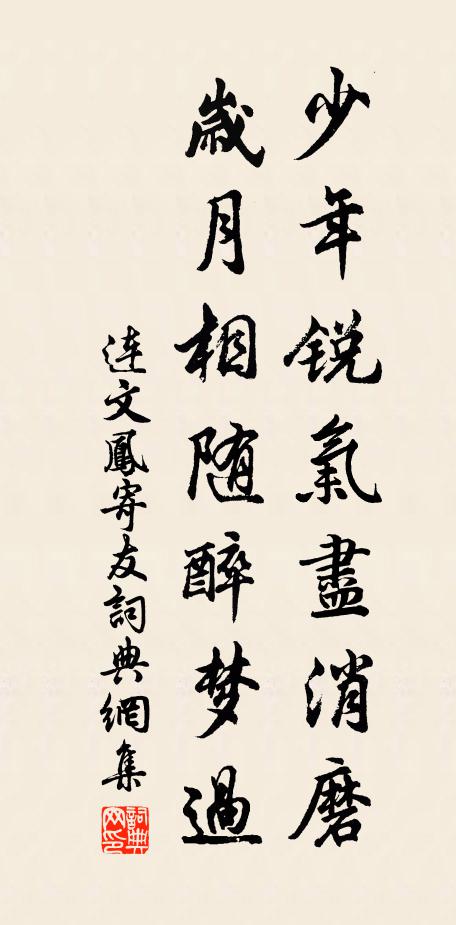 少年銳氣盡消磨
歲月相随醉梦過
连文鳳寄友詞典網集
詞典网印